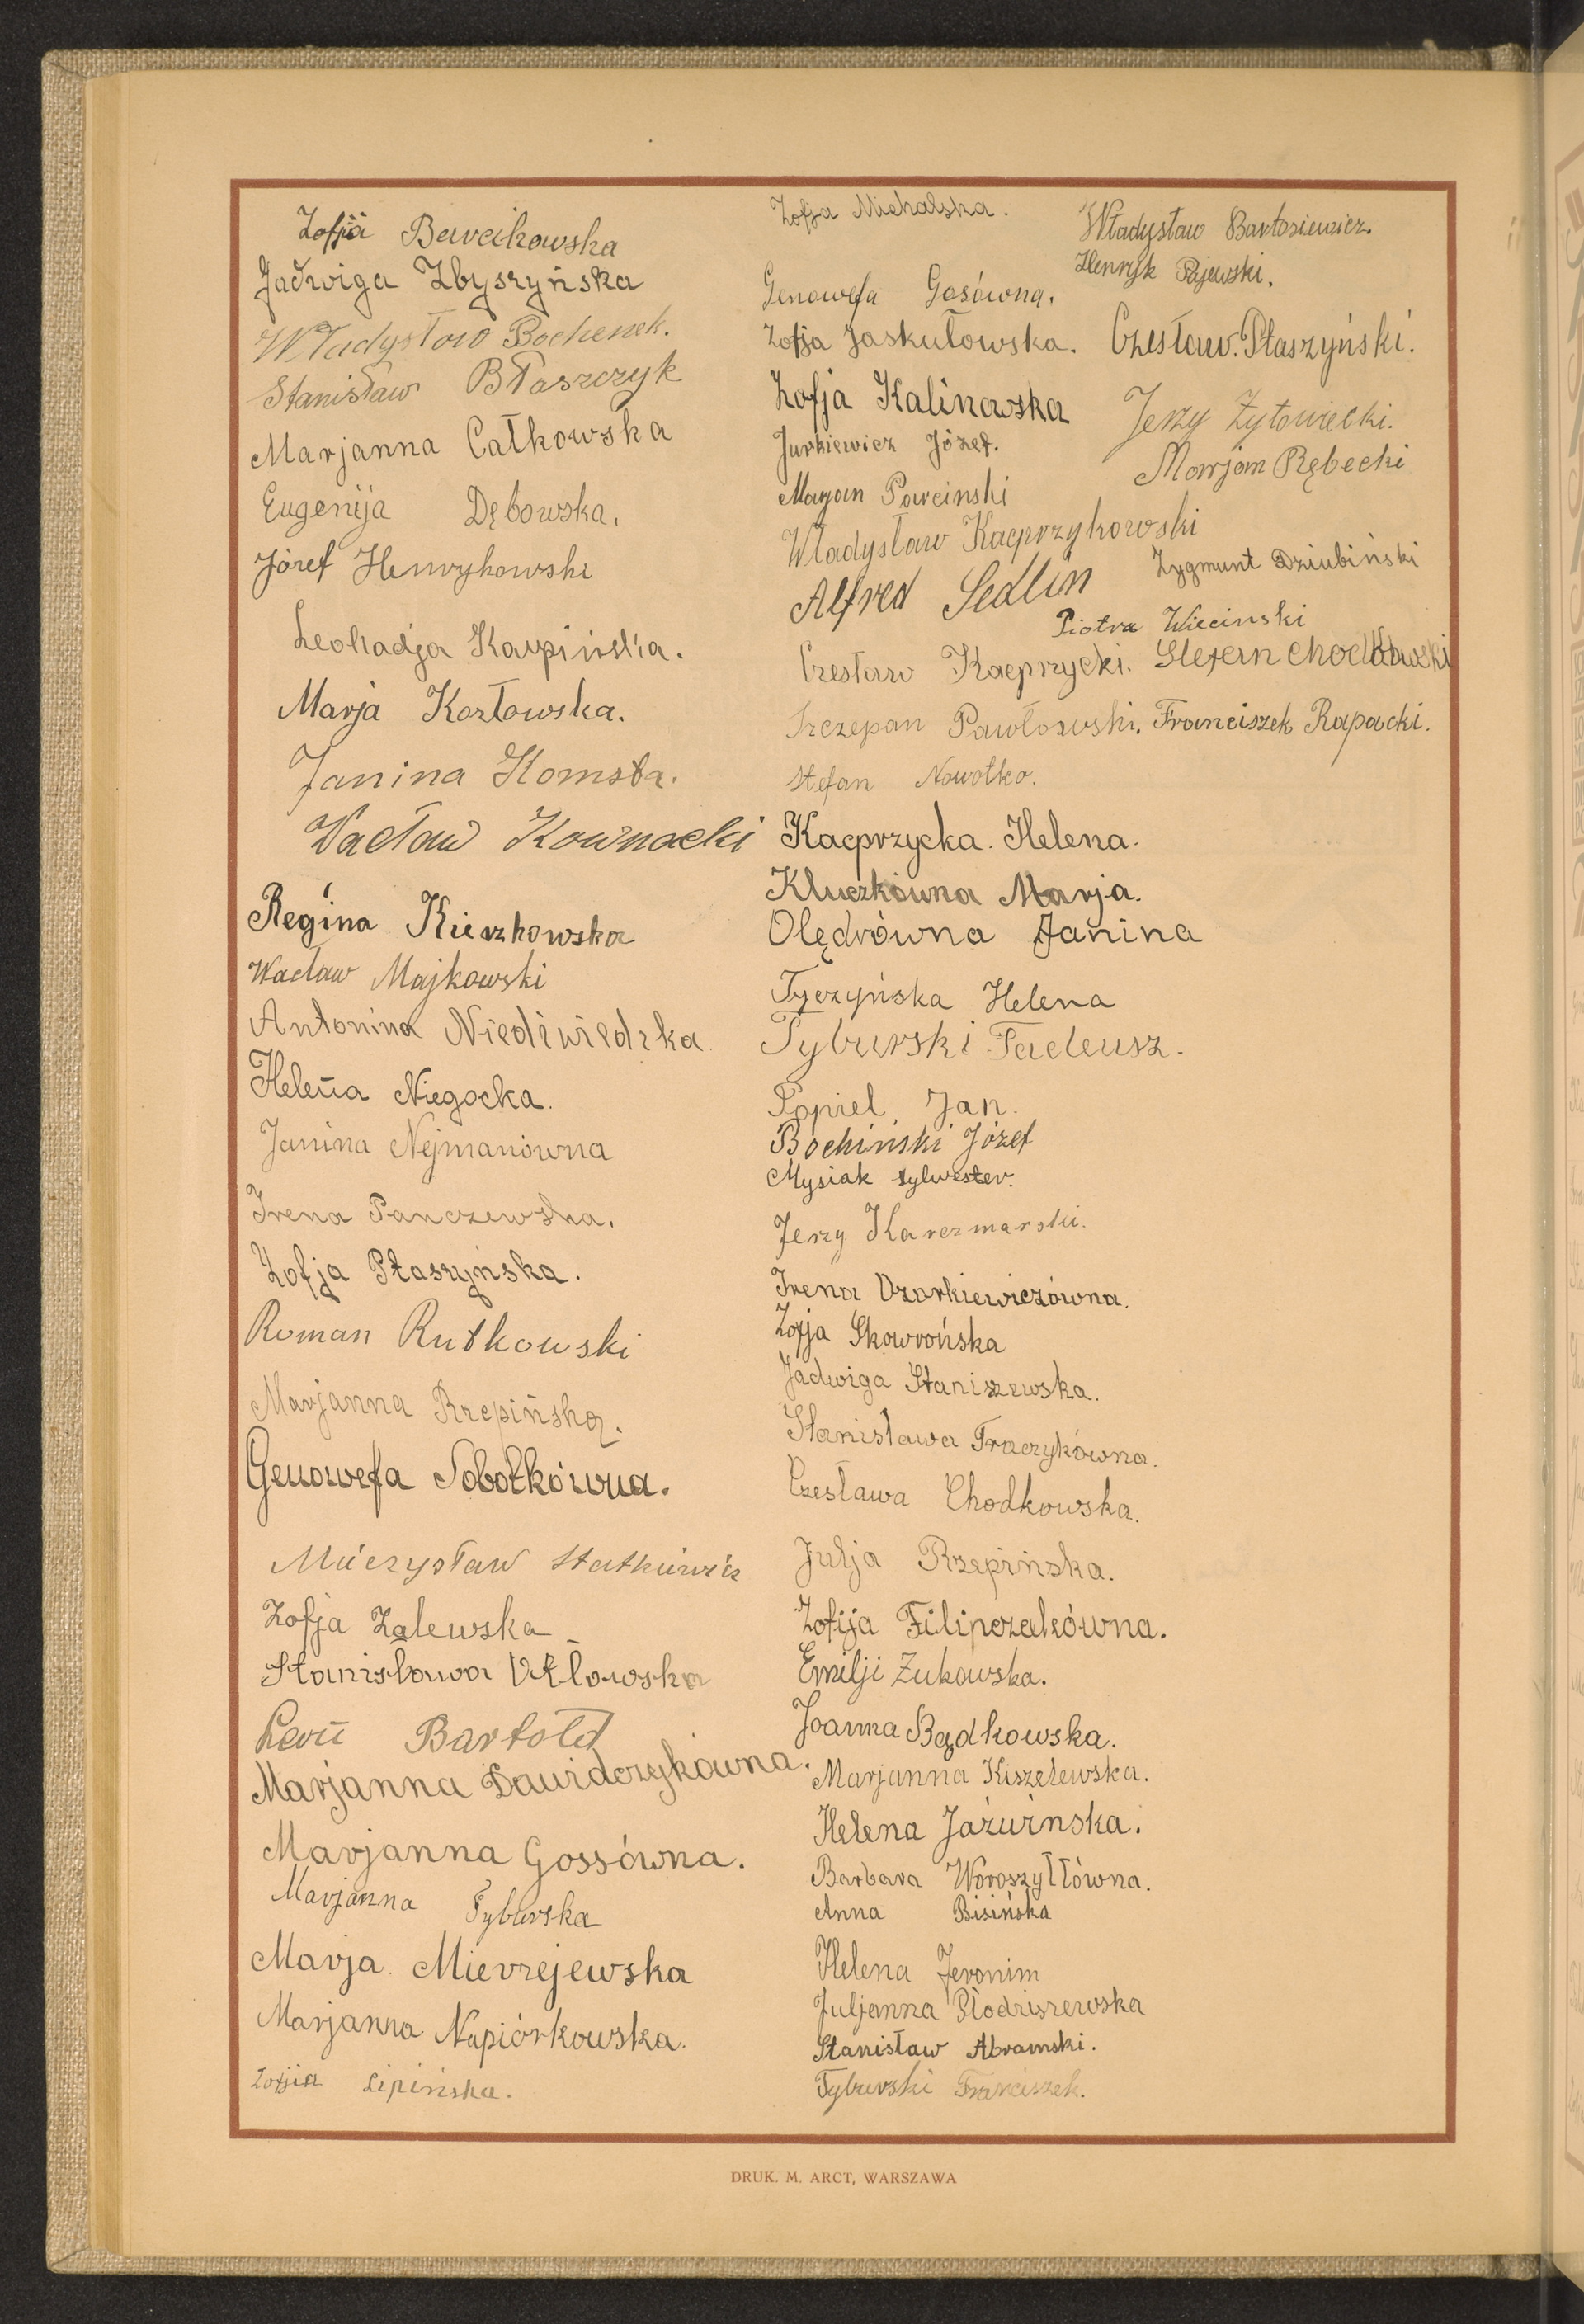 Zofja Bawcikowska
Jadwiga Zbyszyńska
Władysław Bochenek.
Stanisław Błaszczyk
Marjanna Całkowska
Eugenija Dębowska.
Józef Henrykowski
Leokadja Karpińska.
Marja Kozłowska.
Janina Komsta.
Wacław Kownacki
Regina Kierzkowska
Wacław Majkowski
Antonina Niedźwiedzka
Helena Niegocka.
Janina Nejmanówna
Irena Panczewska.
Zofja Ptaszyńska.
Roman Rutkowski
Marjanna Rzepińska.
Genowefa Sobotkówna.
Mieczysław Statkiewicz
Zofja Zalewska
Stanisława
Bartold
Marjanna Dawidczykówna.
Marjanna Gossówna.
Marjanna Tyburska
Marja Mierzejewska
Marjanna Napiórkowska.
Zofja Lipińska.
Zofja Michalska.
Genowefa Gosówna.
Zofja Jaskułowska.
Zofja Kalinowska
Jurkiewicz Józef.
Maryan Parcinski
Władysław Kacprzykowski
Alfred Sedlin
Czesław Kacprzycki.
Szczepan Pawłowski.
Stefan Nowotko.
Kacprzycka. Helena.
Kluczkówna Marja.
Olędrówna Janina
Tyczyńska Helena
Tyburski Tadeusz.
Popiel Jan.
Bochiński Józef
Mysiak Sylwester.
Jerzy Karczmarski.
Irena Ozarkiewiczówna.
Zofja Skowrońska
Jadwiga Staniszewska.
Stanisława Traczykówna.
Czesława Chodkowska.
Julja Rzepińska.
Zofija Filipczakówna.
Emilji Żukowska.
Joanna Bądkowska.
Marjanna Kiszelewska.
Helena Jaźwińska.
Barbara Woroszyłłówna.
Anna Bisińska
Helena Jeronim
Juljanna Płodziszewska
Stanisław Abramski.
Tyburski Franciszek.
Władysław Bartosiewicz.
Henryk Pajewski.
Czesław. Ptaszyński.
Jerzy Żytowiecki.
Marjan Rębecki
Zygmunt Dziubiński
Piotr Wiecinski
Stefan Chodkowski
Franciszek Rapacki.
DRUK. M. ARCT, WARSZAWA